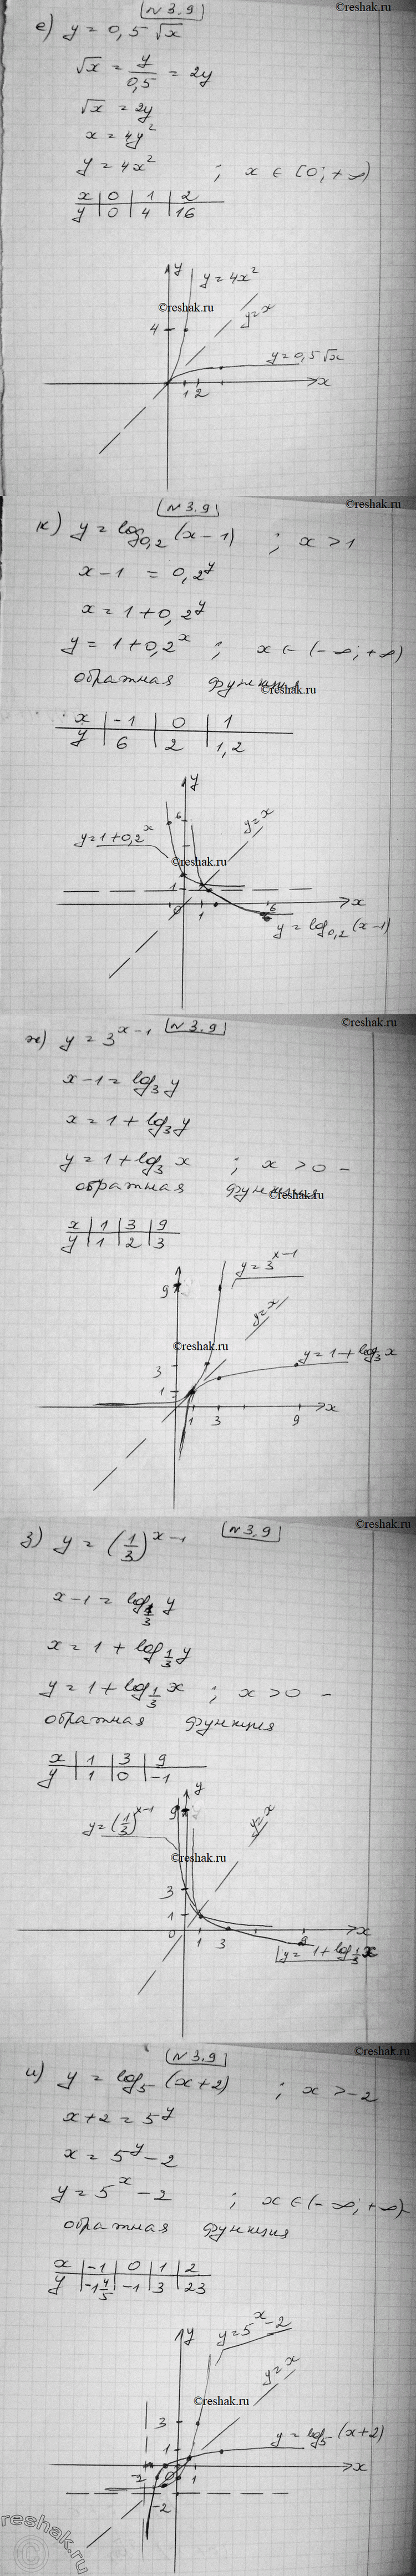 №3.9
©reshak.ru
е) y = 0,5 √x
√x = y/0,5 = 2y
√x = 2y
x = 4y²
y = 4x² ; x ∈ [0; +∞)
x | 0 | 1 | 2
y | 0 | 4 | 16
y
y = 4x²
©reshak.ru
y=x
4
y = 0,5 √x
1 2
x
№3.9
©reshak.ru
к) y = log₀,₂ (x – 1) ; x > 1
x – 1 = 0,2^y
x = 1 + 0,2^y
y = 1 + 0,2^x ; x ∈ (–∞; +∞)
обратная функция
©reshak.ru
x | –1 | 0 | 1
y | 6 | 2 | 1,2
y
6
y = 1 + 0,2^x
y=x
©reshak.ru
1
0 1 6 x
y = log₀,₂ (x – 1)
©reshak.ru
ж) y = 3^(x–1) №3.9
x – 1 = log₃ y
x = 1 + log₃ y
y = 1 + log₃ x ; x > 0 –
обратная функция
©reshak.ru
x | 1 | 3 | 9
y | 1 | 2 | 3
y = 3^(x–1)
9
y=x
©reshak.ru
y = 1 + log₃ x
3
1
1 3 9 x
©reshak.ru
з) y = (1/3)^(x–1) №3.9
x – 1 = log_1/3 y
x = 1 + log_1/3 y
y = 1 + log_1/3 x ; x > 0 –
обратная функция
x | 1 | 3 | 9
y | 1 | 0 | –1
y
9
y = (1/3)^(x–1)
y=x
©reshak.ru
3
1
0 1 3 9 x
y = 1 + log_1/3 x
№3.9
©reshak.ru
и) y = log₅ (x + 2) ; x > –2
x + 2 = 5^y
x = 5^y – 2
y = 5^x – 2 ; x ∈ (–∞; +∞)
обратная функция
x | –1 | 0 | 1 | 2
y | –1 4/5 | –1 | 3 | 23
y
y = 5^x – 2
y=x
©reshak.ru
3
y = log₅ (x + 2)
1
–2 0 1 x
–2
reshak.ru
©reshak.ru